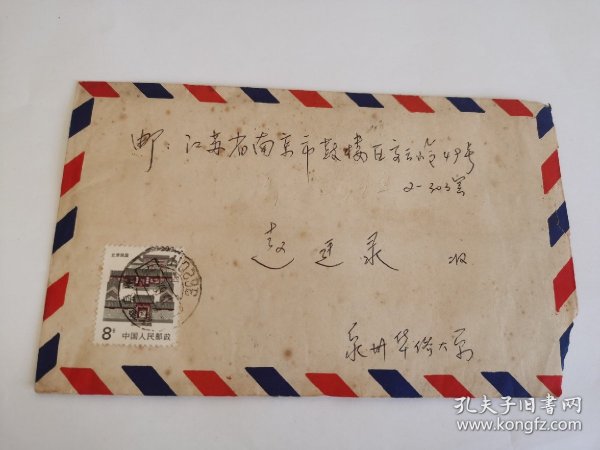 邮: 江苏省南京市鼓楼区 49号
2-303室
赵 廷 录 收
泉州华侨大学
北京民居
8分 中国人民邮政
孔夫子旧书网
www.kongfz.com